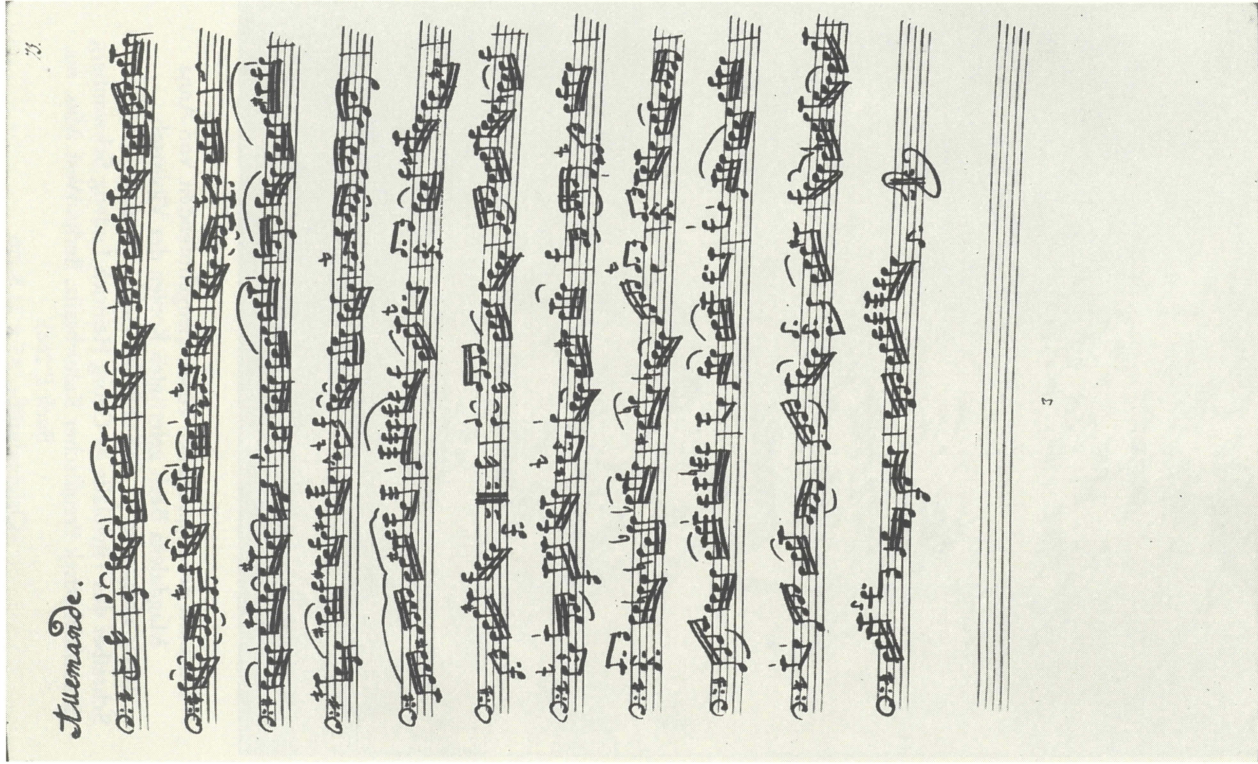 Allemande.
3